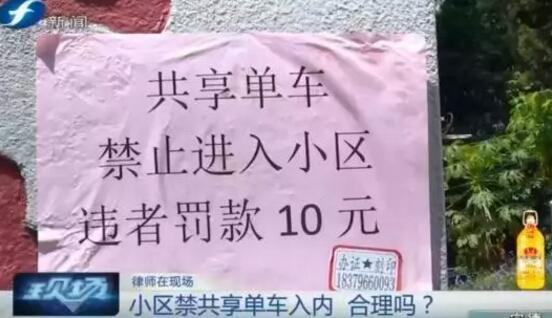 新闻
共享单车
禁止进入小区
违者罚款 10 元
办证★刻印
18379660093
律师在现场
小区禁共享单车入内 合理吗？